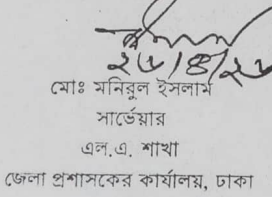 ২৬/৪/২৬
মোঃ মনিরুল ইসলাম
সার্ভেয়ার
এল.এ. শাখা
জেলা প্রশাসকের কার্যালয়, ঢাকা